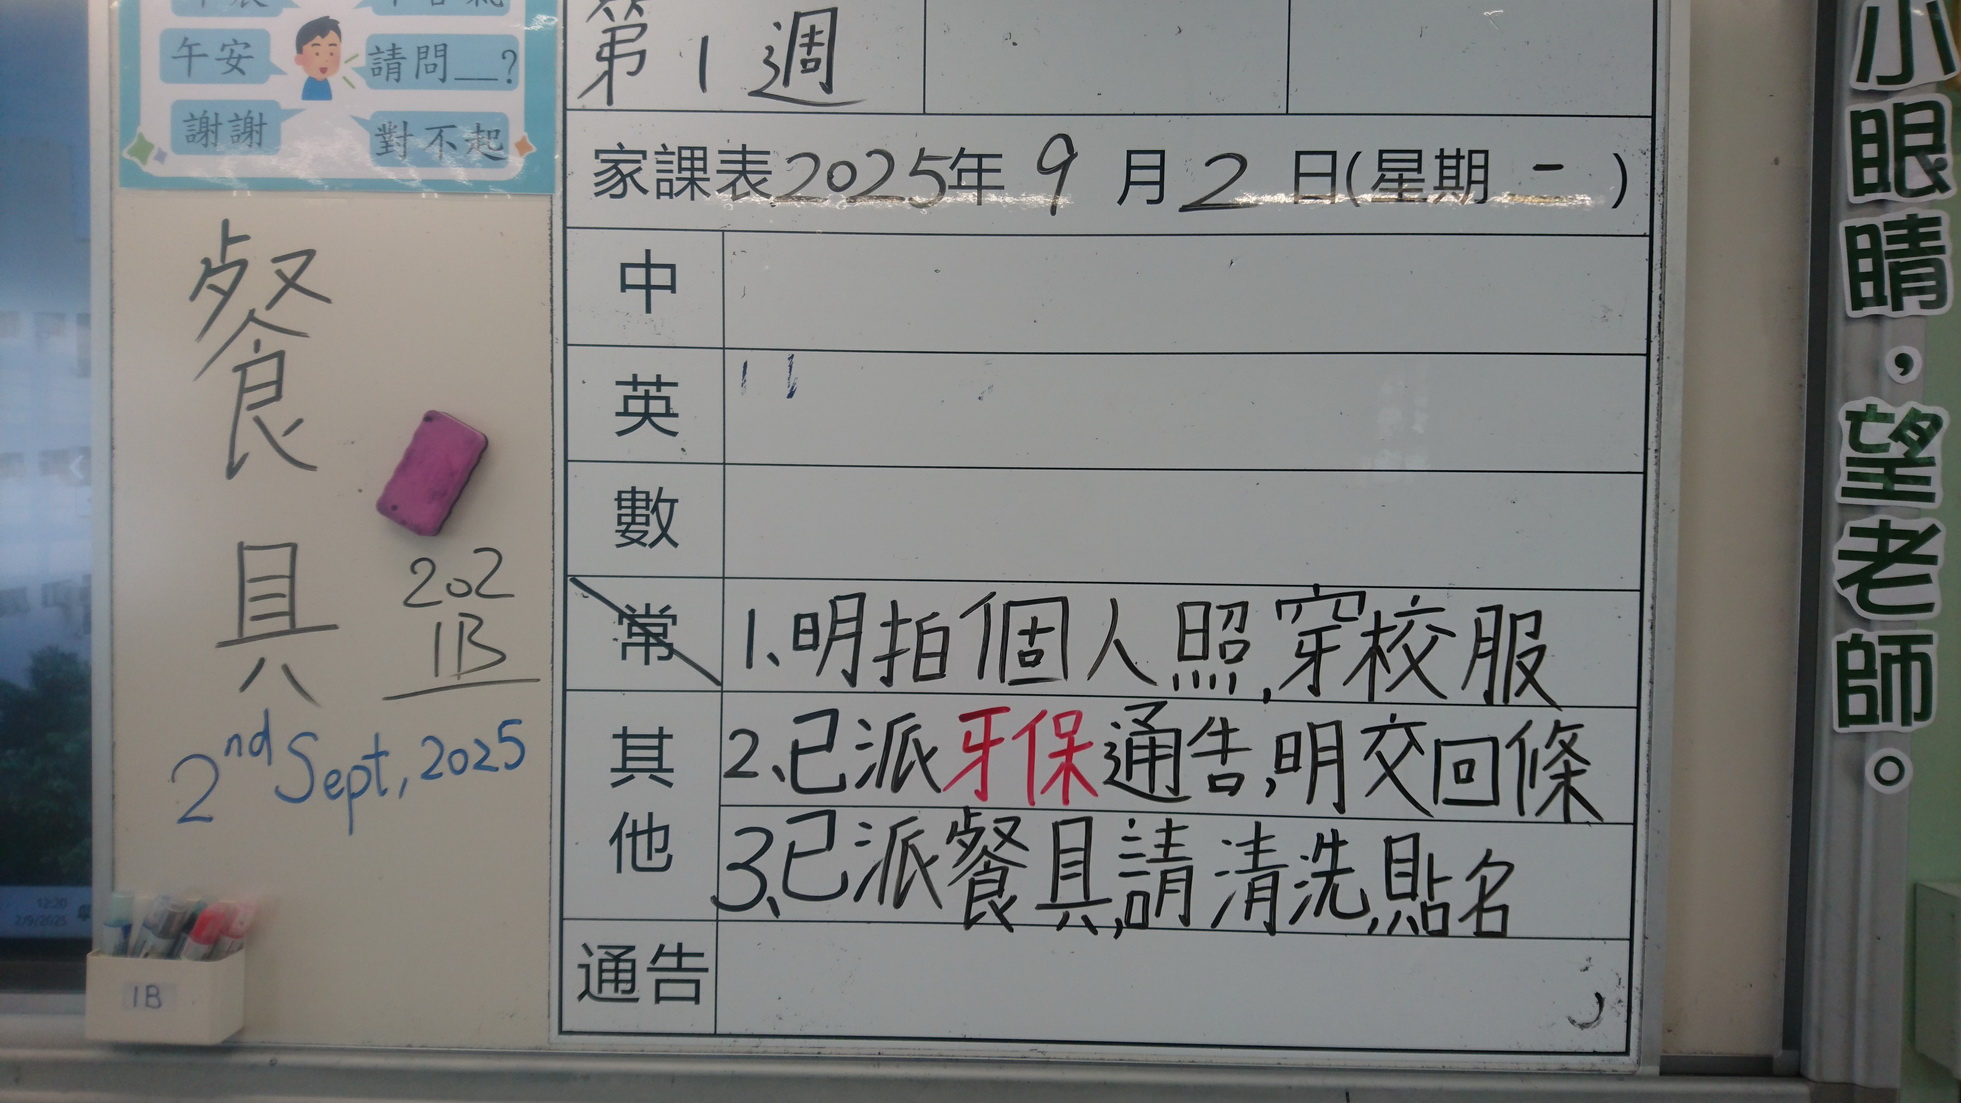 午安
請問__?
謝謝
對不起
第1週
家課表2025年9月2日(星期一)
中
英
數
常
1、明拍個人照,穿校服
其他
2、已派牙保通告,明交回條
3、已派餐具,請清洗,貼名
通告
餐具
202
1B
2nd Sept, 2025
12:20
2/9/2025
1B
小眼睛，望老師。